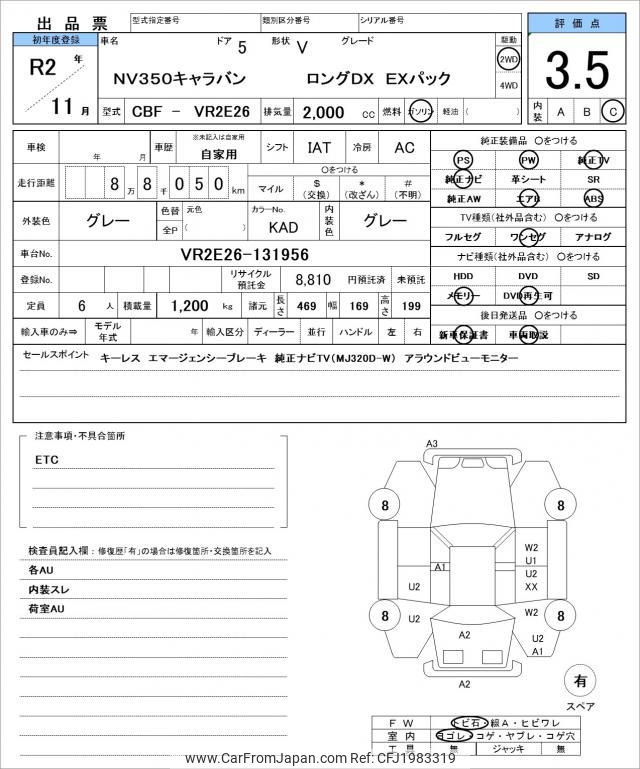 出品票
型式指定番号 類別区分番号 シリアル番号
評価点
3.5
内装 A B C
初年度登録
R2 年
11 月
車名 ドア 5 形状 V グレード
NV350キャラバン ロングDX EXパック
駆動
2WD
4WD
型式 CBF - VR2E26 排気量 2,000 cc 燃料 ガソリン 軽油 ( )
車検 年 月 車歴 ※未記入は自家用 自家用 シフト IAT 冷房 AC
走行距離 8 万 8 千 0 5 0 km ○をつける マイル $ (交換) * (改ざん) # (不明)
外装色 グレー 色替 元色 全P ( ) カラーNo. KAD 内装色 グレー
車台No. VR2E26-131956
登録No. リサイクル預託金 8,810 円預託済 未預託
定員 6 人 積載量 1,200 kg 諸元 長さ 469 幅 169 高さ 199
輸入車のみ⇒ モデル年式 年 輸入区分 ディーラー 並行 ハンドル 左 右
純正装備品 ○をつける
PS PW 純正TV
純正ナビ 革シート SR
純正AW エアB ABS
TV種類(社外品含む) ○をつける
フルセグ ワンセグ アナログ
ナビ種類(社外品含む) ○をつける
HDD DVD SD
メモリー DVD再生可
後日発送品 ○をつける
新車保証書 車両取説
セールスポイント キーレス エマージェンシーブレーキ 純正ナビTV(MJ320D-W) アラウンドビューモニター
注意事項・不具合箇所
ETC
検査員記入欄:修復歴「有」の場合は修復箇所・交換箇所を記入
各AU
内装スレ
荷室AU
A3
8 8
W2
U1
A1
U2
XX
U2
W2
8 8
U2
A2
U2
A1
A2
有
スペア
FW トビ石・線A・ヒビワレ
室内 ヨゴレ・コゲ・ヤブレ・コゲ穴
工具 無 ジャッキ 無
www.CarFromJapan.com Ref:CFJ1983319